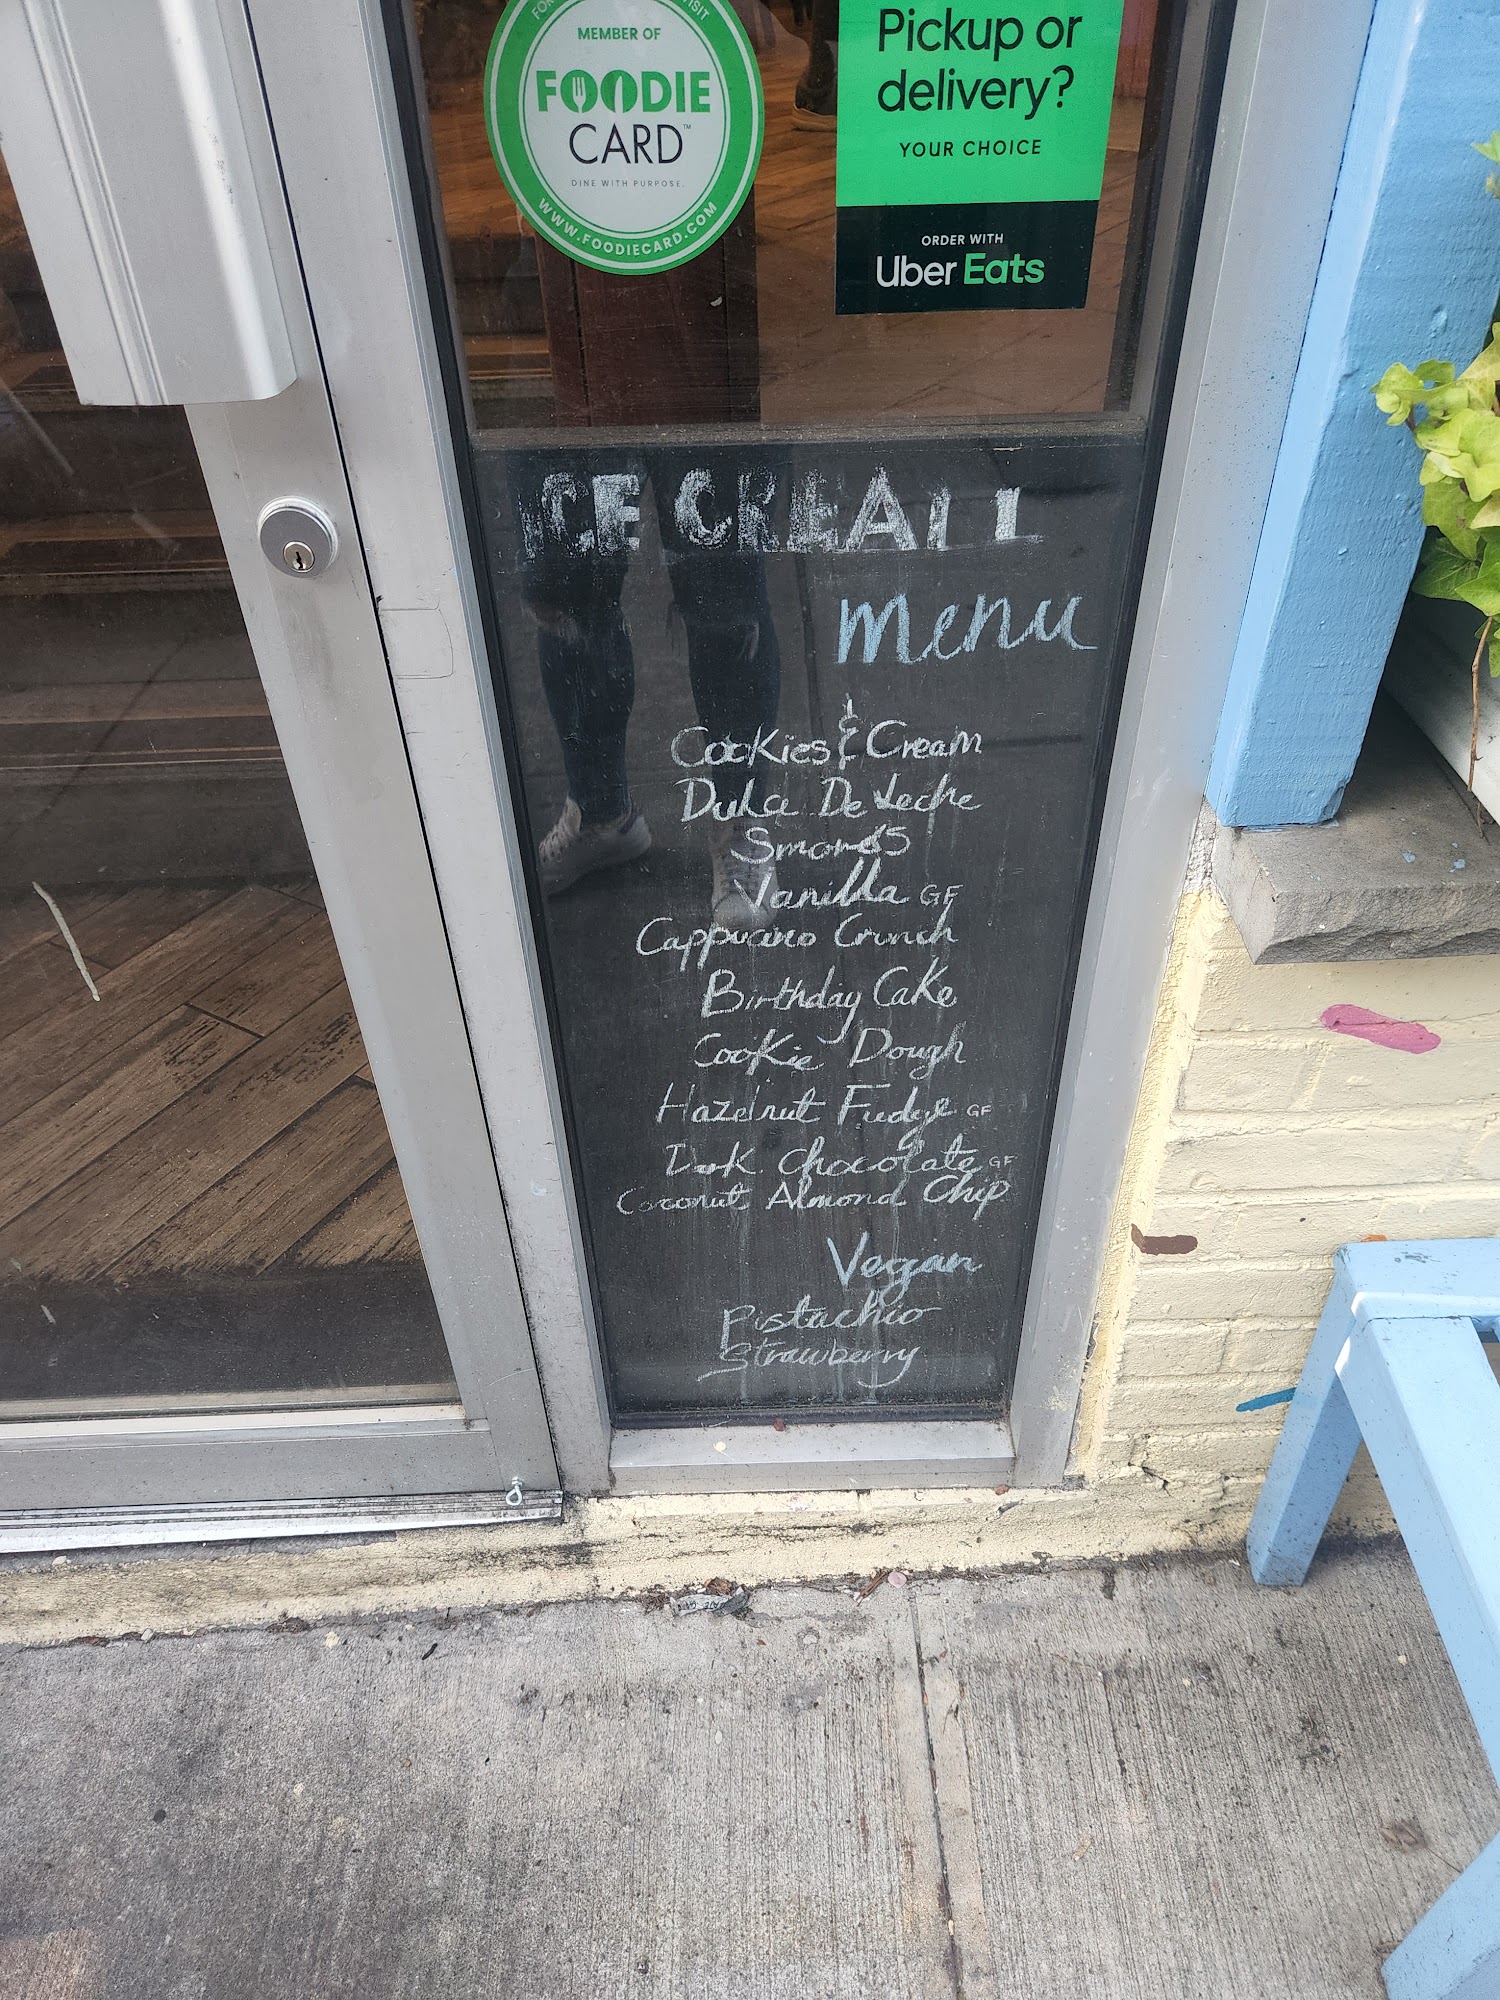 FOR
VISIT
MEMBER OF
FOODIE
CARD™
DINE WITH PURPOSE.
WWW.FOODIECARD.COM
Pickup or
delivery?
YOUR CHOICE
ORDER WITH
Uber Eats
ICE CREAM
menu
Cookies & Cream
Dulce De Leche
Smores
Vanilla GF
Cappucino Crunch
Birthday Cake
Cookie Dough
Hazelnut Fudge GF
Dark Chocolate GF
Coconut Almond Chip
Vegan
Pistachio
Strawberry